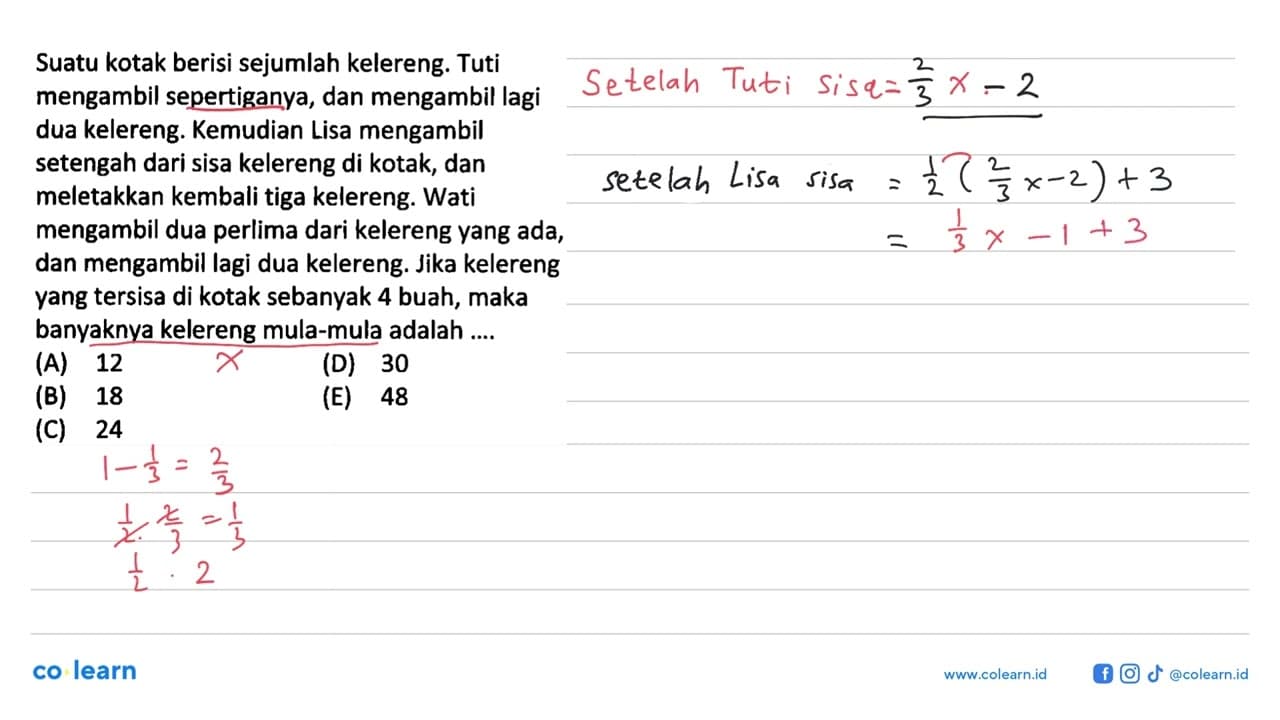 Suatu kotak berisi sejumlah kelereng. Tuti
mengambil sepertiganya, dan mengambil lagi
dua kelereng. Kemudian Lisa mengambil
setengah dari sisa kelereng di kotak, dan
meletakkan kembali tiga kelereng. Wati
mengambil dua perlima dari kelereng yang ada,
dan mengambil lagi dua kelereng. Jika kelereng
yang tersisa di kotak sebanyak 4 buah, maka
banyaknya kelereng mula-mula adalah ....
(A) 12 x (D) 30
(B) 18 (E) 48
(C) 24
1 - 1/3 = 2/3
1/2 . 2/3 = 1/3
1/2 . 2
Setelah Tuti sisa = 2/3 x - 2
setelah Lisa sisa = 1/2 (2/3 x - 2) + 3
= 1/3 x - 1 + 3
co learn
www.colearn.id
@colearn.id